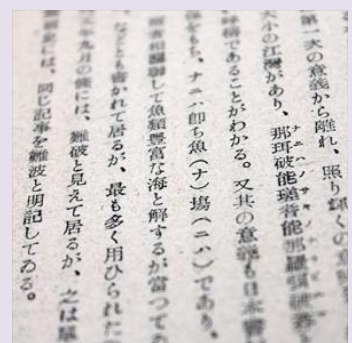 第一次の意義から離れ、照り輝くの意
大小の江灣があり、那珥破能瑳耆能那羅
であることがわかる。又其の意義も日本
をもち、ナニハ即ち魚(ナ)場(ニハ)であり、
して魚類豊富な海と解するが當つて
などとも書かれて居るが、最も多く用ひられた
年九月の條には、難波と見えて居るが、之は
には、同じ記事を難波と明記してゐる。